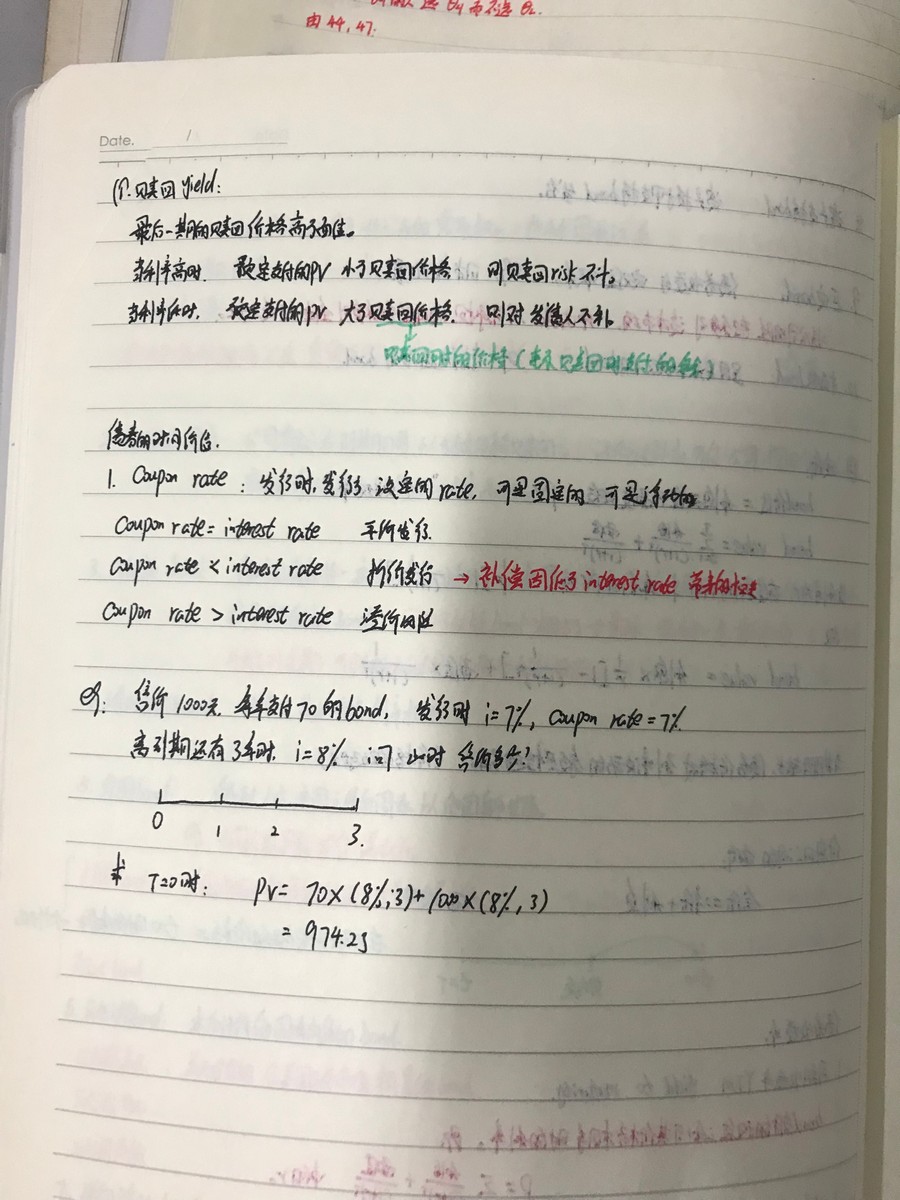 由44,47:
Date. /
价. 贝卖回 yield:
最后一期的贝卖回价格高于面值。
当利率高时 预定支付的PV 小于贝卖回价格 则贝卖回risk不计。
当利率低时. 预定支付的PV 大于贝卖回价格. 则对发债人不利.
贝卖回时的价格(表示贝卖回时支付的
债券的时间价值.
1. Coupon rate : 发行时, 发行方 决定的rate, 可是固定的 可是浮动的
Coupon rate = interest rate 平价发行.
Coupon rate < interest rate 折价发行 → 补偿因低于interest rate 带来的损失
Coupon rate > interest rate 溢价
eg: 售价1000元 每年支付70的bond, 发行时 i=7%, coupon rate=7%
离到期还有3年时, i=8% 问 此时 售价多少?
0 1 2 3.
求 T=0时: PV= 70×(8%,3)+1000×(8%,3)
= 974.23